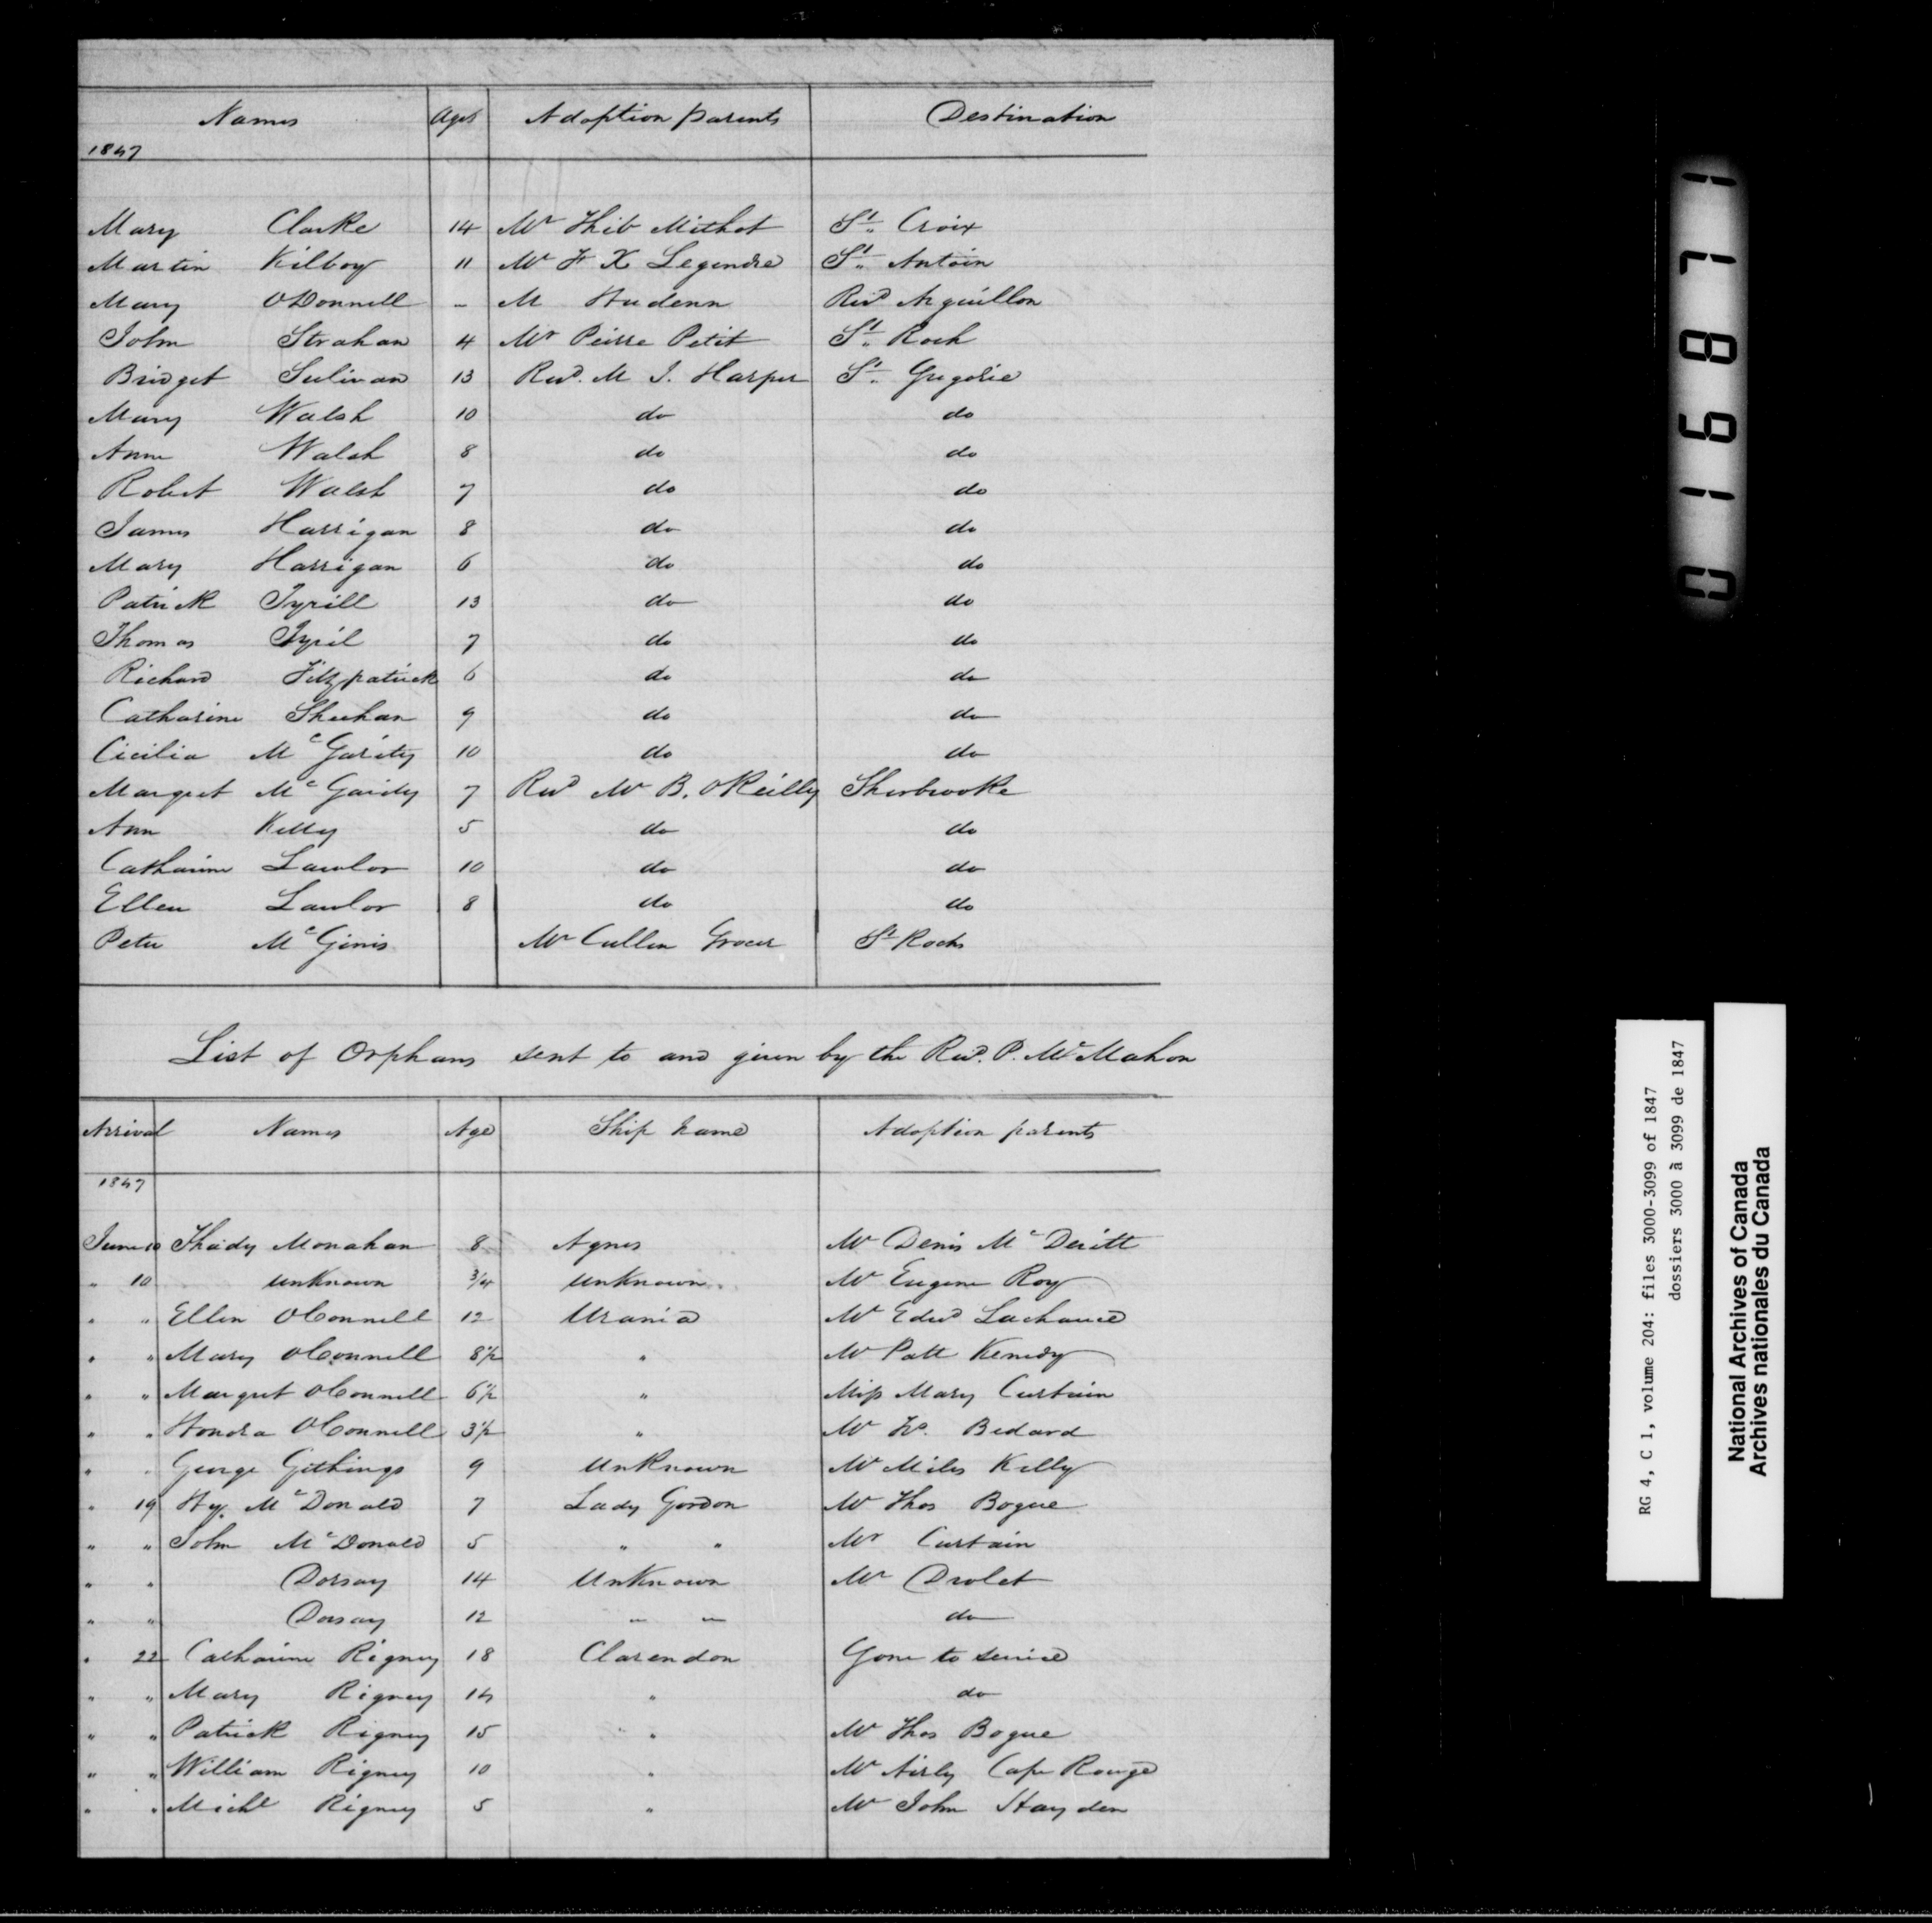 Names Ages Adoption parents Destination
1847
Mary Clarke 14 Mr Thib Mithot St. Croix
Martin Kilboy 11 Mr F X Legendre St. Antoin
Mary ODonnell - M Hudenn Rivd Arguillon
John Strahan 4 Mr Peirre Petit St. Roch
Bridget Sulivan 13 Revd. M J. Harper St. Gregorie
Mary Walsh 10 do do
Ann Walsh 8 do do
Robert Walsh 7 do do
James Harrigan 8 do do
Mary Harrigan 6 do do
Patrick Tyrill 13 do do
Thomas Tyril 7 do do
Richard Fitzpatrick 6 do do
Catharine Sheehan 9 do do
Cicilia McGarity 10 do do
Margret McGarity 7 Revd Mr B. OReilly Sherbrooke
Ann Kelly 5 do do
Catharine Lawlor 10 do do
Ellen Lawlor 8 do do
Peter McGinis Mr Cullen Grocer St Rochs
List of Orphans sent to and given by the Revd. P. McMahon
Arrival Names Age Ship name Adoption parents
1847
June 10 Thady Monahan 8 Agnes Mr Denis McDeritt
" 10 unknown 3/4 unknown Mr Eugene Roy
" " Ellen OConnell 12 Urania Mr Edwd Lachance
" " Mary OConnell 8 1/2 " Mr Patt Kenedy
" " Margret OConnell 6 1/2 " Miss Mary Curtain
" " Honora OConnell 3 1/2 " Mr Bedard
" " George Githings 9 Unknown Mr Miles Kelly
" 19 Hy. McDonald 7 Lady Gordon Mr Thos Bogue
" " John McDonald 5 " " Mr Curtain
" " Dorsay 14 Unknown Mr Drolet
" " Dorsay 12 " " do
" 22 Catharine Rigney 18 Clarendon Gone to service
" " Mary Rigney 14 " do
" " Patrick Rigney 15 " Mr Thos Bogue
" " William Rigney 10 " Mr Airly Cape Rouge
" " Michl Rigney 5 " Mr John Hayden
016871
RG 4, C 1, volume 204: files 3000-3099 of 1847
dossiers 3000 à 3099 de 1847
National Archives of Canada
Archives nationales du Canada